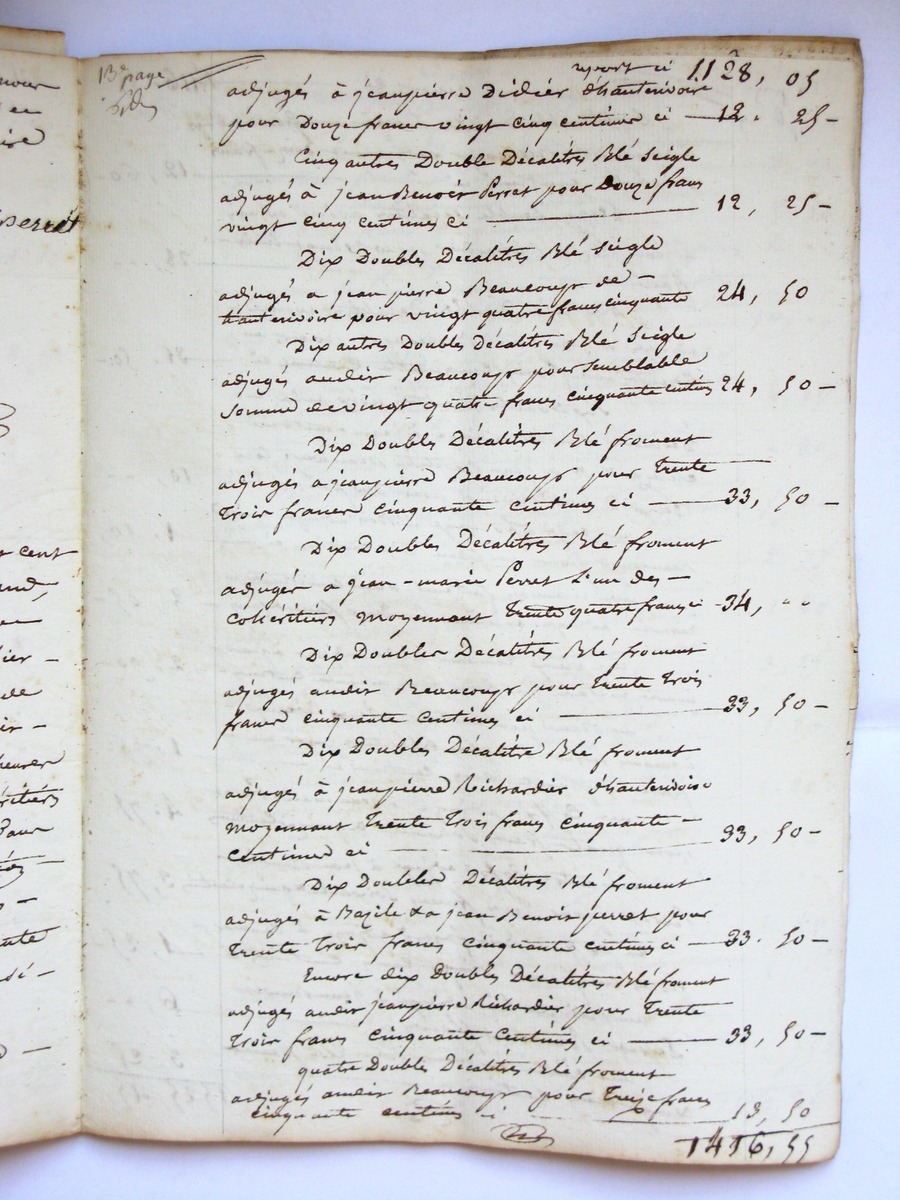 13e page
report ci 1128, 05
adjugés à jeanpierre Didier d'hauterivoire
pour Douze francs vingt cinq centimes ci — 12. 25 —
Cinq autres Double Décalitres Blé seigle
adjugés à jean Benoit Perret pour Douze francs
vingt cinq centimes ci — 12, 25 —
Dix Doubles Décalitres Blé seigle
adjugés a jean pierre Beaucoup de —
hauterivoire pour vingt quatre francs cinquante 24, 50
Dix autres Doubles Décalitres Blé seigle
adjugés audit Beaucoup pour semblable
somme de vingt quatre francs cinquante centimes 24, 50 —
Dix Doubles Décalitres Blé froment
adjugés a jeanpierre Beaucoup pour trente
trois francs cinquante centimes ci — 33, 50 —
Dix Doubles Décalitres Blé froment
adjugés a jean-marie Perret l'un des —
cohéritiers moyennant trente quatre francs ci - 34, " "
Dix Doubles Décalitres Blé froment
adjugés audit Beaucoup pour trente trois
francs cinquante centimes ci — 33, 50 —
Dix Doubles Décalitre Blé froment
adjugés à jeanpierre Richardier d'hauterivoire
moyennant trente trois francs cinquante —
centimes ci — 33, 50 —
Dix Doubles Décalitres Blé froment
adjugés à Bazile & a jean Benoit perret pour
trente trois francs cinquante centimes ci — 33. 50 —
Encore dix doubles Décalitres Blé froment
adjugés audit jeanpierre Richardier pour trente
trois francs cinquante centimes ci — 33, 50 —
quatre Doubles Décalitres Blé froment
adjugés audit Beaucoup pour treize francs
cinquante centimes ci — 13, 50
1416, 55